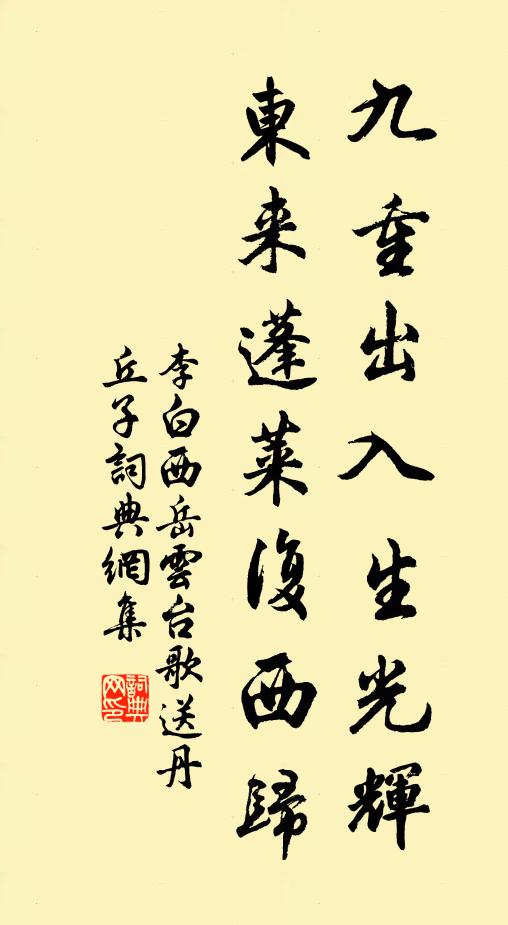 九重出入生光輝
東来蓬萊復西歸
李白西岳雲台歌送丹
丘子詞典網集
詞典网印